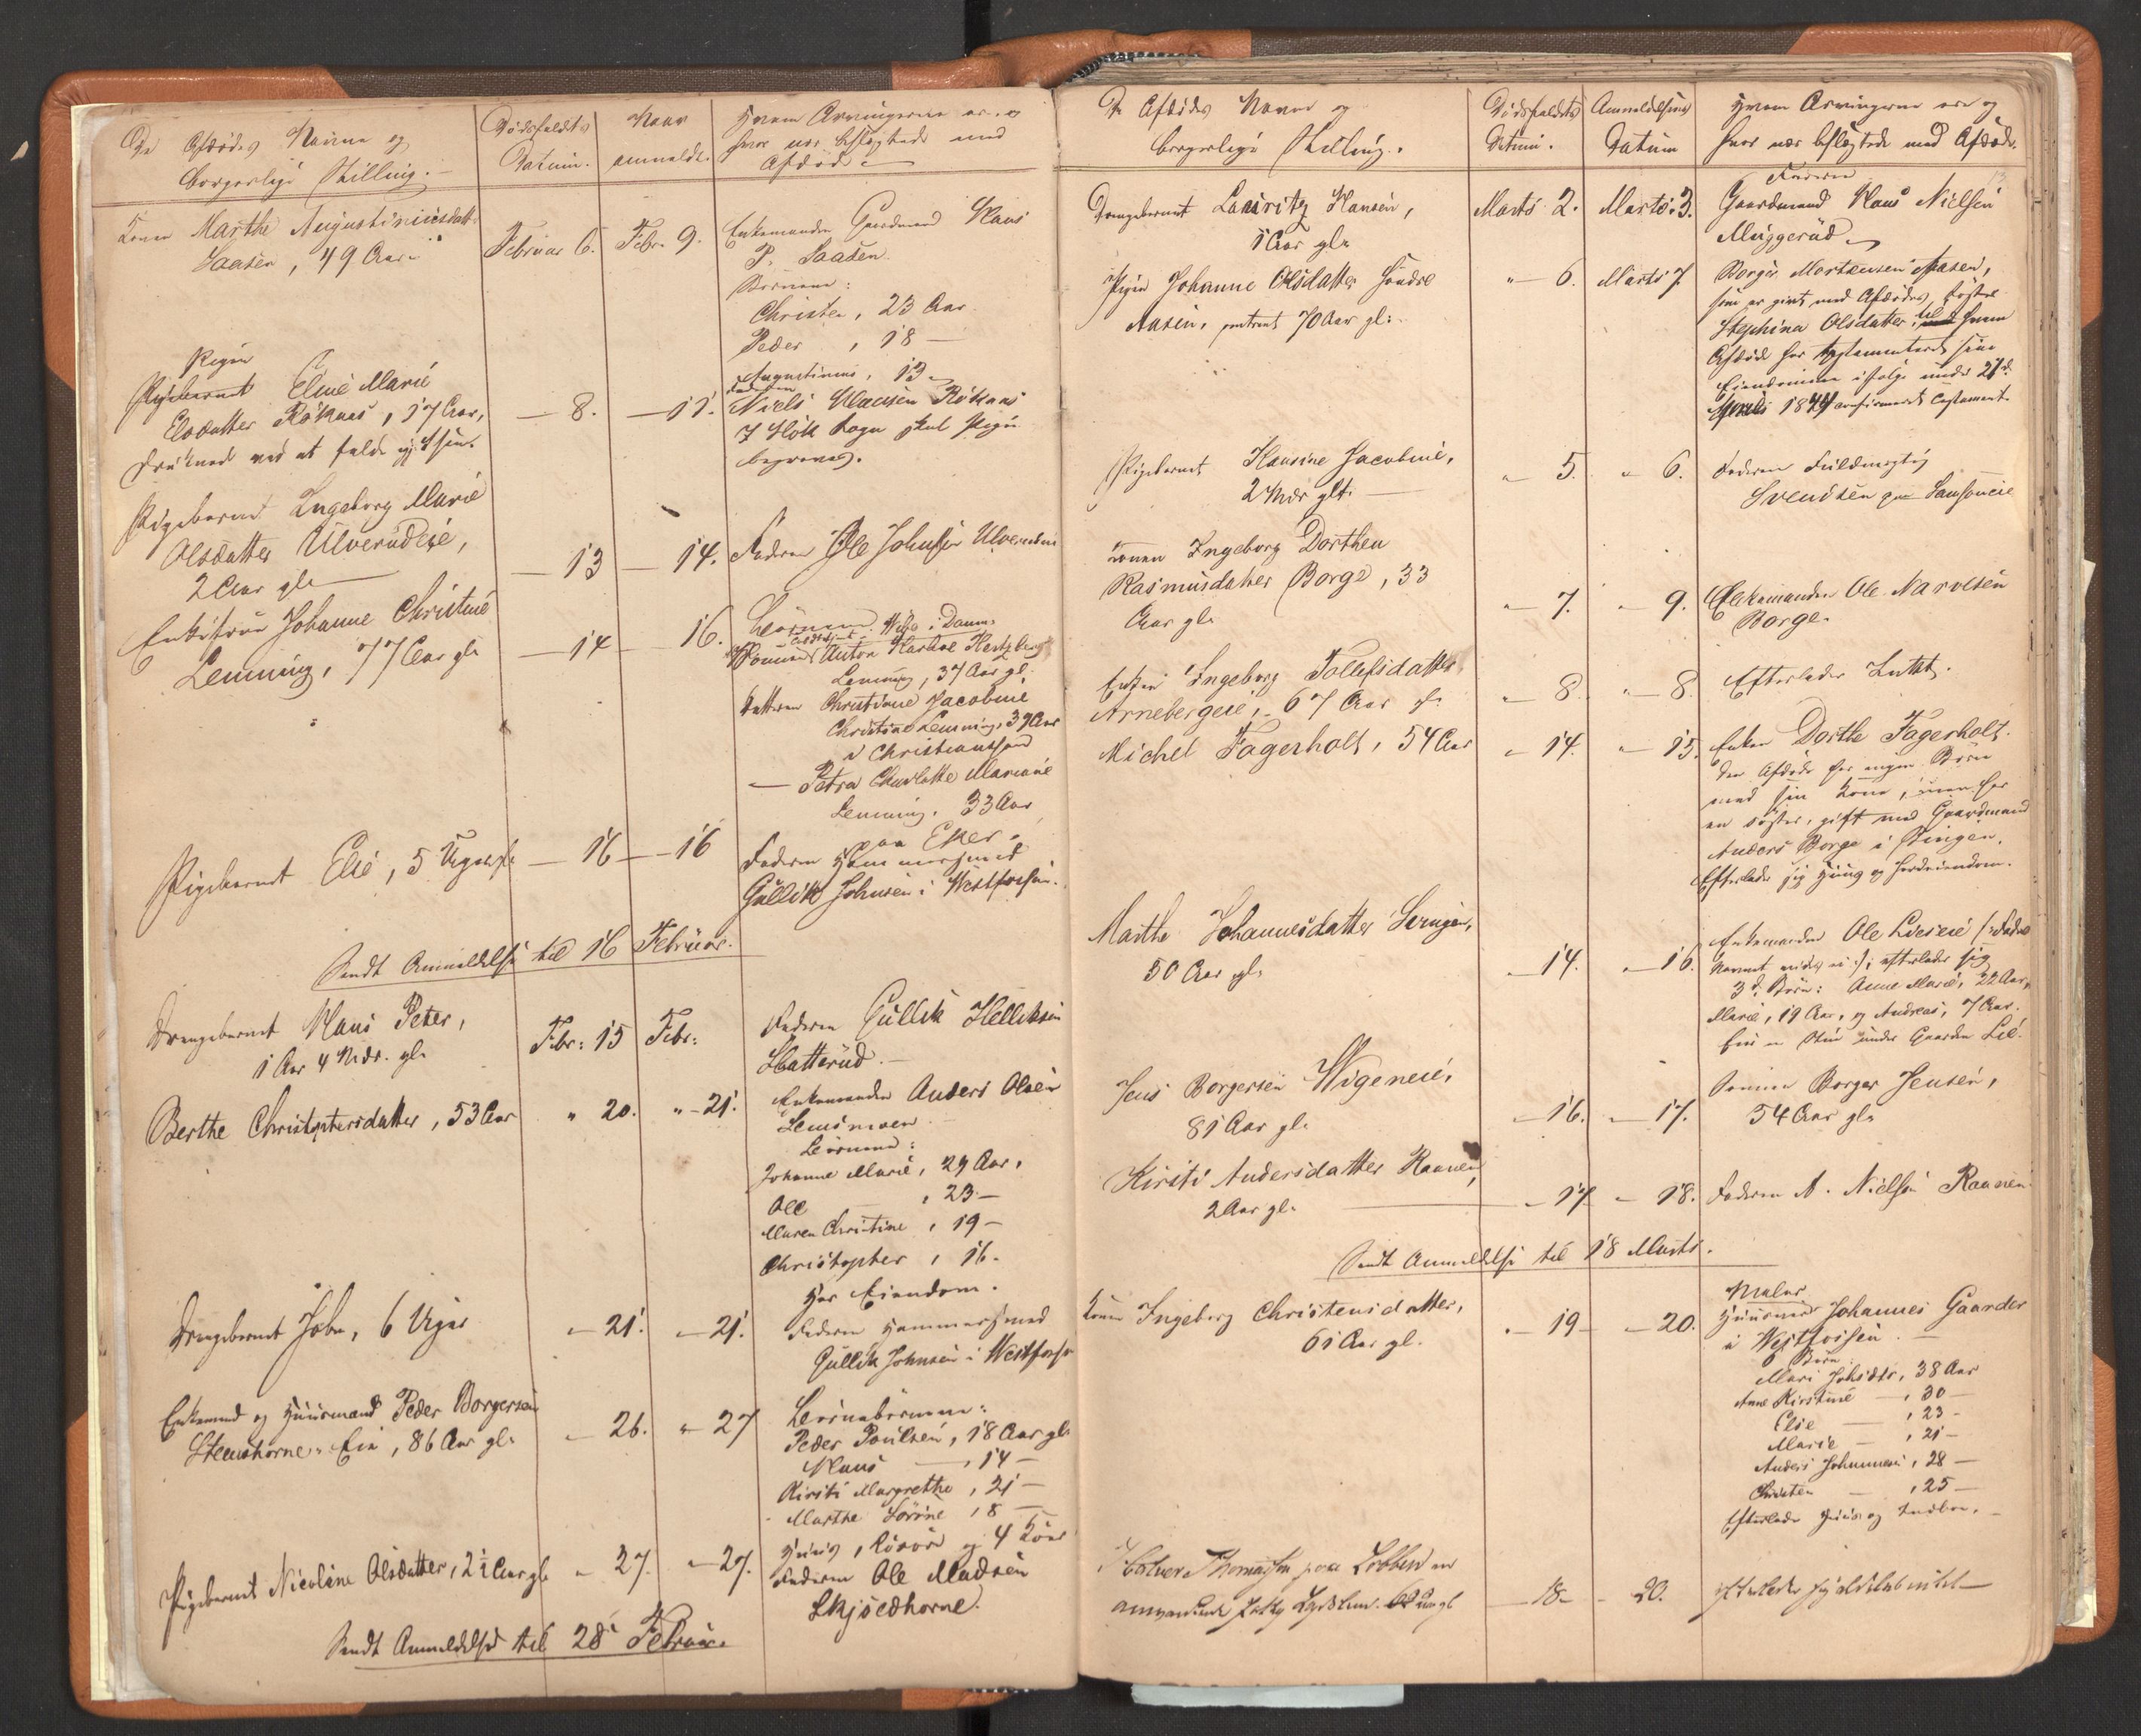 De Afdødes Navne og
borgerlige Stilling.
Dødsfaldets
Datum.
Naar
anmeldt.
Hvem Arvingerne ere og
hvor nær beslægtede med
Afdøde
Konen Marthe Augustiniusdatt.
Saasen, 49 Aar
Februar 6.
Febr. 9.
Enkemanden Gaardmand Hans
P. Saasen.
Børnene:
Christen, 23 Aar
Peder, 18 —
Augustinius, 13
Pigen
Pigebarnet Eline Marie
Elsdatter Røknæs, 17 Aar,
druknede ved at falde
— 8.
— 11.
Faderen
Niels Røknæs
skal Pigen
begraves.
Pigebarnet Ingeborg Marie
Olsdatter Ulverudeie,
2 Aar gl.
— 13
— 14.
Faderen Ole Johnsen Ulverudeie
Enkefrue Johanne Christine
Lemming, 77 Aar gl.
— 14
— 16.
Børnene:
Sønnen Anton Hertzberg
Lemming, 37 Aar gl.
Datteren Christiane Jacobine
Christine Lemming, 39 Aar
i Christianssand
— Petra Charlotte Mariane
Lemming, 33 Aar
paa Eker.
Pigebarnet Elise, 5 Uger gl.
— 16
— 16
Faderen Hammersmed
Gullik Johnsen i Westfossen.
Sendt Anmeldelse til 16 Februar.
Drengebarnet Hans Peter,
1 Aar 4 Mdr. gl.
Febr: 15
Febr:
Faderen Gullik Helliksen
Hatterud.
Berthe Christophersdatter, 53 Aar
" 20.
" - 21.
Enkemanden Anders Olsen
Lensmoen
Børnene:
Johanne Marie, 29 Aar,
Ole, 23 —
Maren Christine, 19 —
Christopher, 16.
Har Eiendom.
Drengebarnet John, 6 Uger
— 21.
— 21.
Faderen Hammersmed
Gullik Johnsen i Westfossen
Enkemand og Huusmand Peder Borgersen
Steushorne-Eie, 86 Aar gl.
— 26.
" 27
Børnebørnene:
Peder Poulsen, 18 Aar gl.
Hans —, 14 —
Kirsti Margrethe, 21 —
Marthe Sørine, 8 —
Huus, og 4 Køer
Pigebarnet Nicoline Olsdatter, 2½ Aar gl.
" 27.
— 27.
Faderen Ole Madsen
Skjsedhorne.
Sendt Anmeldelse til 28 Februar.
De Afdødes Navne og
borgerlige Stilling.
Dødsfaldets
Datum.
Anmeldelsens
Datum
Hvem Arvingerne ere og
hvor nær beslægtede med Afdøde.
13
Drengebarnet Lauritz Hansen,
1 Aar gl.
Marts 2.
Marts 3.
Faderen
Gaardmand Hans Nielsen
Muggerud
Pigen Johanne Olsdatter Søndre
Aasen, omtrent 70 Aar gl.
" — 6.
Marts 7.
Borger Mortensen Aasen,
som er givt med Afdødes Søster
Stephina Olsdatter, til hvem
Afdøde har testamenteret sine
Eiendomme ifølge under 21de
1844 confirmeret Testament.
Pigebarnet Hansine Jacobine,
2 Mdr glt.
" 5.
" 6.
Faderen Fuldmægtig
Svendsen paa Sanssouci
Konen Ingeborg Dorthea
Rasmusdatter Borge, 33
Aar gl.
" — 7.
" 9.
Enkemanden Ole Narvesen
Borge.
Enken Ingeborg Tollefsdatter
Arnebergeie, 67 Aar gl.
" — 8.
" — 8.
Efterlader Intet.
Michel Fagerholt, 54 Aar
" 14.
" — 15.
Enken Dorthe Fagerholt.
Den Afdøde har ingen Børn
med sin Kone, men har
en Søster, gift med Gaardmand
Anders Borge i Fiingen.
Efterlader sig Huus og Jordeiendom.
Marthe Johannesdatter
50 Aar gl.
— 14.
" — 16.
Enkemanden Ole Lieseie
Navnet vides ei :/; efterlader sig
3de Børn: Anne Marie, 22 Aar,
Marie, 19 Aar, og Andreas, 7 Aar.
Eier en Stue under Gaarden Lie.
Jens Borgersen Wigeneie,
81 Aar gl.
— 16.
— 17.
Sønnen Borger Jensen,
54 Aar gl.
Kirsti Andersdatter Raanen,
2 Aar gl.
— 17
— 18.
Faderen A. Nielsen Raanen
Sendt Anmeldelse til 18 Marts.
Konen Ingeborg Christensdatter,
61 Aar gl.
" — 19
— 20.
Maler
Huusmand Johannes Gaarder
i Westfossen.
6 Børn
Mari Johsdtr, 38 Aar
Anne Kirstine —, 30 —
Elise —, 23 —
Marie —, 21 —
Anders Johannesen, 28 —
Christen —, 25 —
Efterlader Huus og Indboe.
Halvor Thomassen paa Lobben
— 18 —
20.
efterlader sig